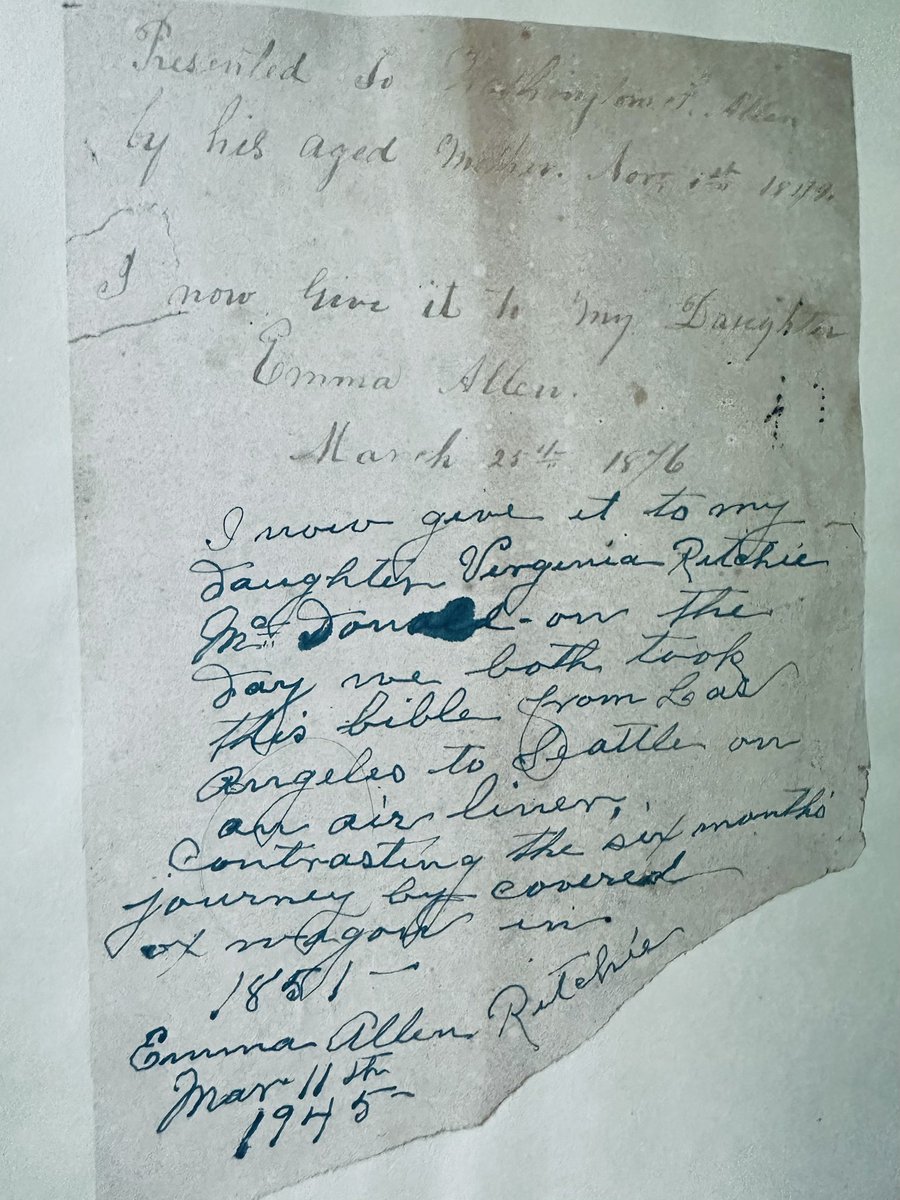 Presented to Washington H. Allen
by his aged Mother. Nov. 1st 1849.
I now Give it to my Daughter
Emma Allen.
March 25th 1876
I now give it to my
daughter Virginia Ritchie
Mc Donald - on the
day we both took
this bible from Los
Angeles to Seattle on
an air liner,
Contrasting the six months
journey by covered
ox wagon in
1851 -
Emma Allen Ritchie
Mar 11th
1945 -